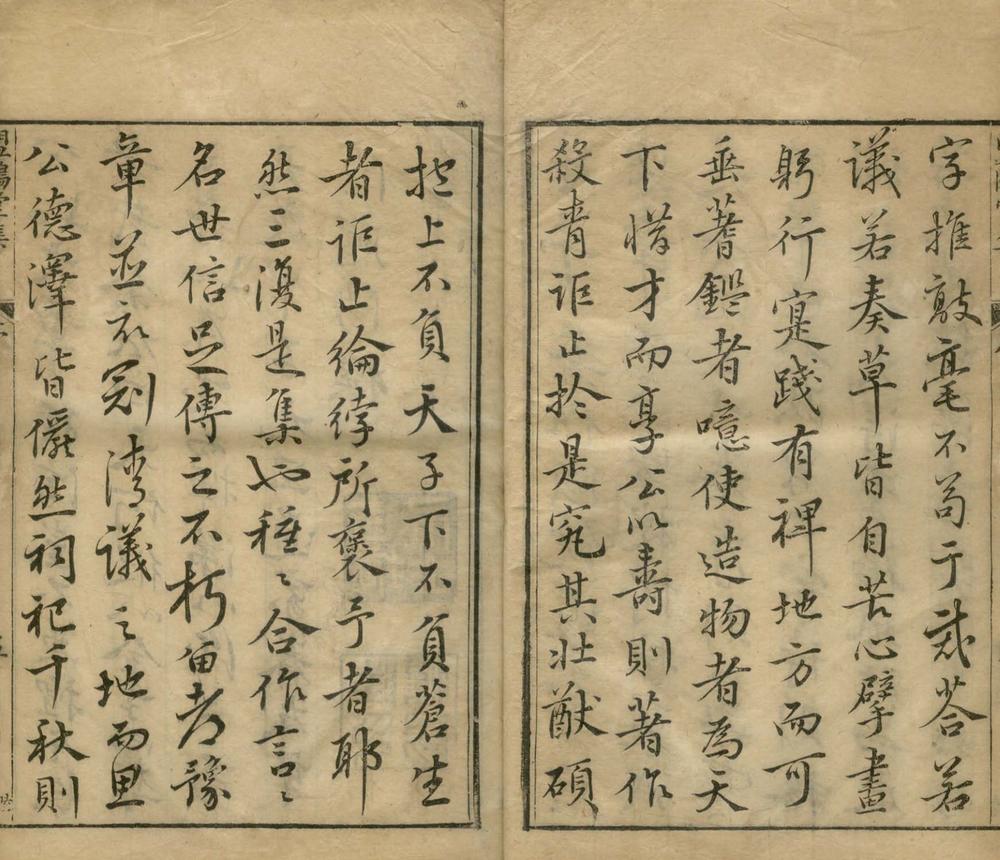 字推敲毫不苟于裁答若
議若奏草皆自苦心擘畫
躬行寔踐有裨地方而可
垂蓍鑑者噫使造物者為天
下惜才而享公以壽則著作
殺青詎止於是究其壯猷碩
抱上不負天子下不負蒼生
者詎止綸綍所褒予者耶
然三復是集也種〻合作言〻
名世信足傳之不朽毋考豫
章並衣冠灣議之地而思
公德澤皆儼然祠祀千秋則